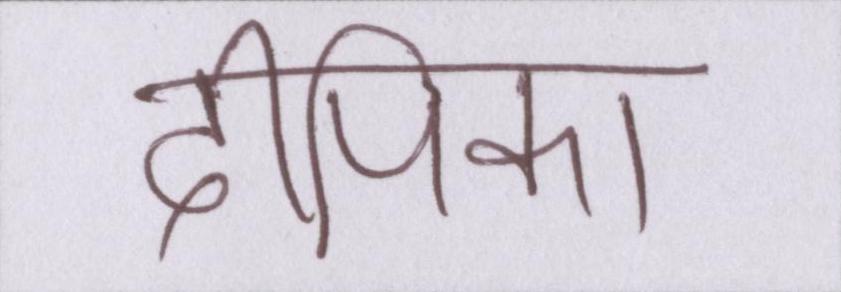 दीपिका